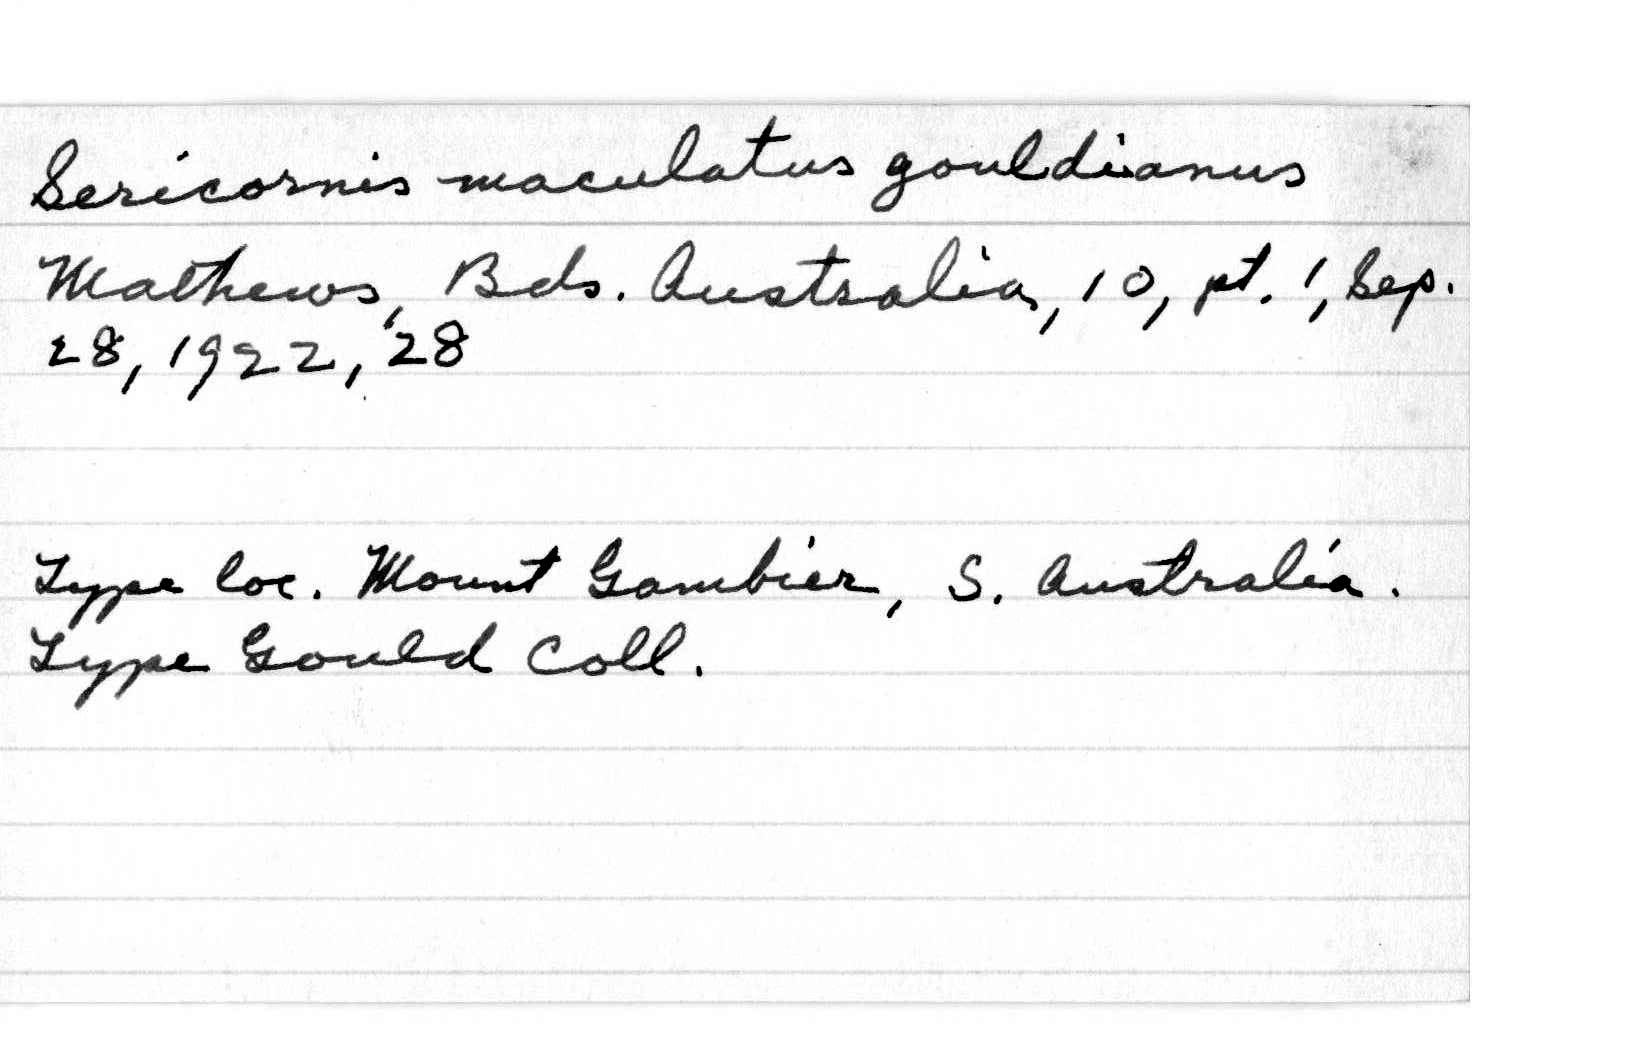 Sericornis maculatus gouldianus
Mathews, Bds. Australia, 10, pt. 1, Sep.
28, 1922, 28
Type loc. Mount Gambier, S. Australia.
Type Gould Coll.